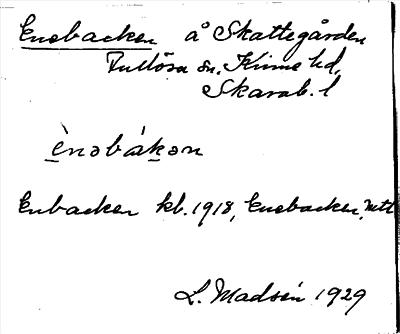 Enebacken å Skattegården
Fullösa sn, Kinne hd,
Skarab. l
ènəbákən
Enbacken kb. 1918, Enebacken, mtl
L. Madsén 1929